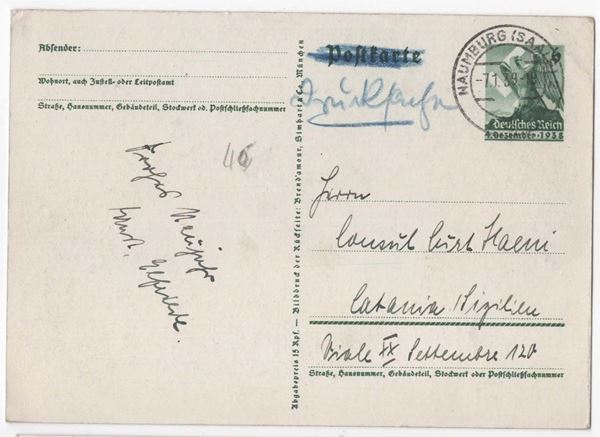 Absender:
Wohnort, auch Zustell- oder Leitpostamt
Straße, Hausnummer, Gebäudeteil, Stockwerk od. Postschließfachnummer
46
Frohes Neujahr
Abgabepreis 15 Rpf. — Bilddruck der Rückseite: Brend'amour, Simhart & Co., München
Postkarte
Drucksache
NAUMBURG (SAALE)
-7.1.39.-18
6
Deutsches Reich
4. Dezember · 1938
Herrn
Consul Curt Haeni
Catania / Sizilien
Viale XX Settembre 120
Straße, Hausnummer, Gebäudeteil, Stockwerk oder Postschließfachnummer